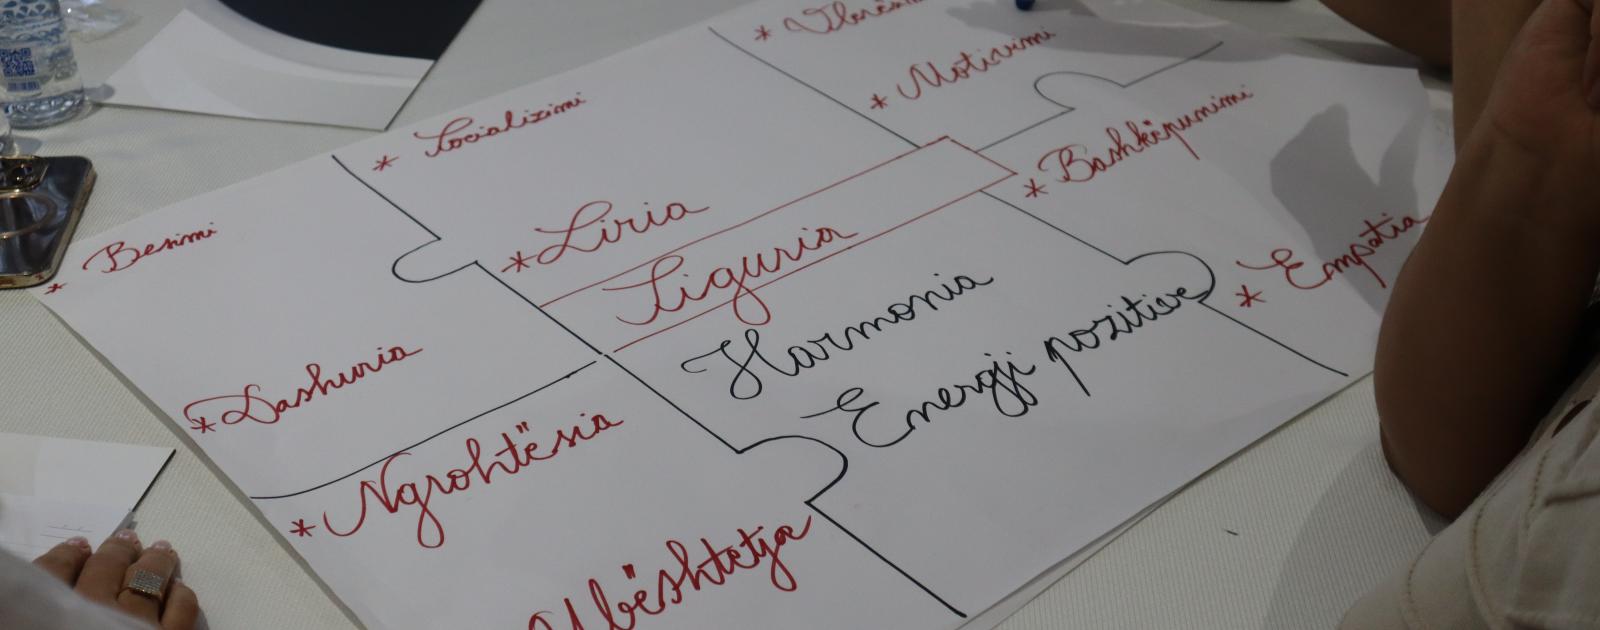 * Vlerësimi
* Motivimi
* Socializimi
* Bashkëpunimi
* Liria
* Besimi
Siguria
* Empatia
Harmonia
Energji pozitive
* Dashuria
* Ngrohtësia
Mbështetja